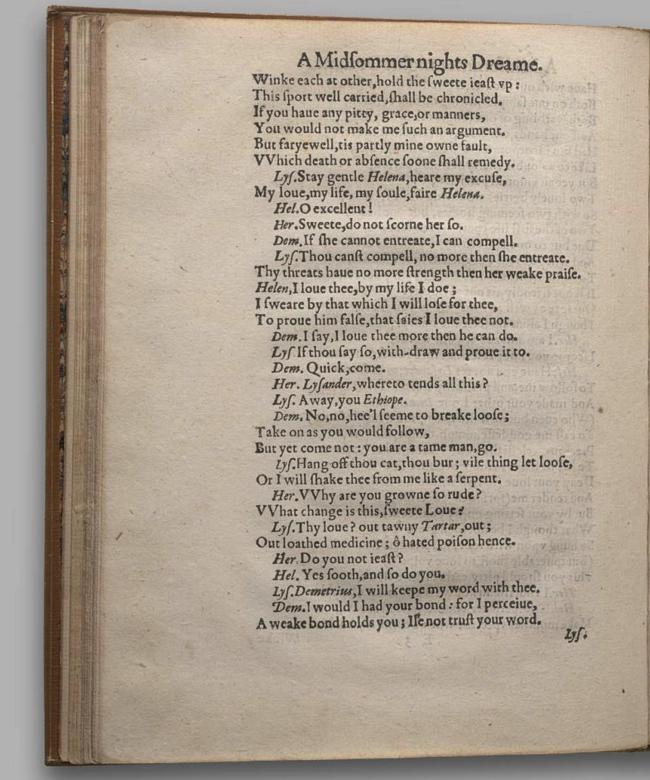 A Midſommer nights Dreame.
Winke each at other,hold the ſweete ieaſt vp :
This ſport well carried,ſhall be chronicled.
If you haue any pitty, grace,or manners,
You would not make me ſuch an argument.
But faryewell,tis partly mine owne fault,
VVhich death or abſence ſoone ſhall remedy.
Lyſ.Stay gentle Helena,heare my excuſe,
My loue,my life, my ſoule,faire Helena.
Hel.O excellent !
Her.Sweete,do not ſcorne her ſo.
Dem.If ſhe cannot entreate,I can compell.
Lyſ.Thou canſt compell, no more then ſhe entreate.
Thy threats haue no more ſtrength then her weake praiſe.
Helen,I loue thee,by my life I doe ;
I ſweare by that which I will loſe for thee,
To proue him falſe,that ſaies I loue thee not.
Dem.I ſay,I loue thee more then he can do.
Lyſ If thou ſay ſo,with-draw and proue it to.
Dem. Quick,come.
Her. Lyſander,whereto tends all this ?
Lyſ. Away,you Ethiope.
Dem. No,no,hee'l ſeeme to breake looſe ;
Take on as you would follow,
But yet come not : you are a tame man,go.
Lyſ.Hang off thou cat,thou bur ; vile thing let looſe,
Or I will ſhake thee from me like a ſerpent.
Her.VVhy are you growne ſo rude ?
VVhat change is this,ſweete Loue ?
Lyſ.Thy loue ? out tawny Tartar,out ;
Out loathed medicine ; ô hated poiſon hence.
Her.Do you not ieaſt ?
Hel. Yes ſooth,and ſo do you.
Lyſ.Demetrius,I will keepe my word with thee.
Dem.I would I had your bond : for I perceiue,
A weake bond holds you ; Ile not truſt your word.
Lyſ.